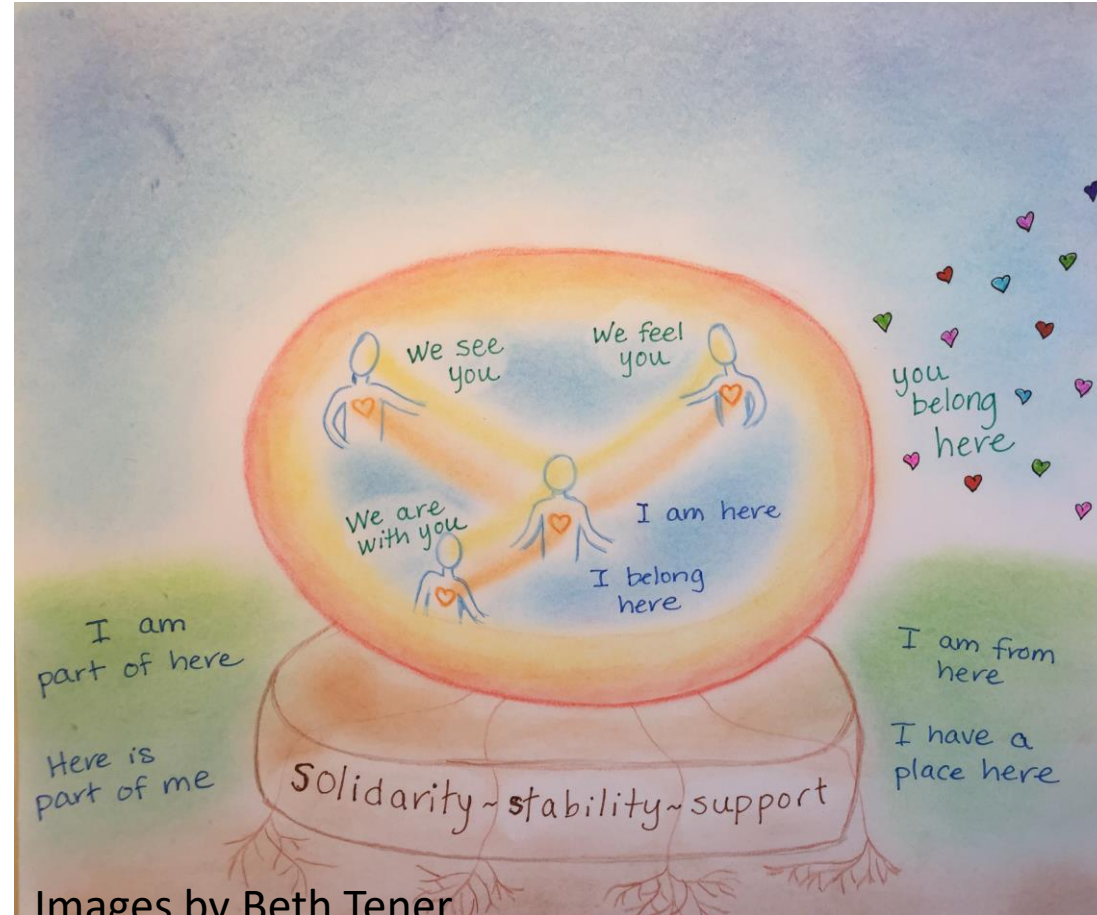 We see
you
We feel
you
you
belong
here
We are
with you
I am here
I belong
here
I am
part of here
Here is
part of me
I am from
here
I have a
place here
Solidarity ~ stability ~ support
Images by Beth Tener